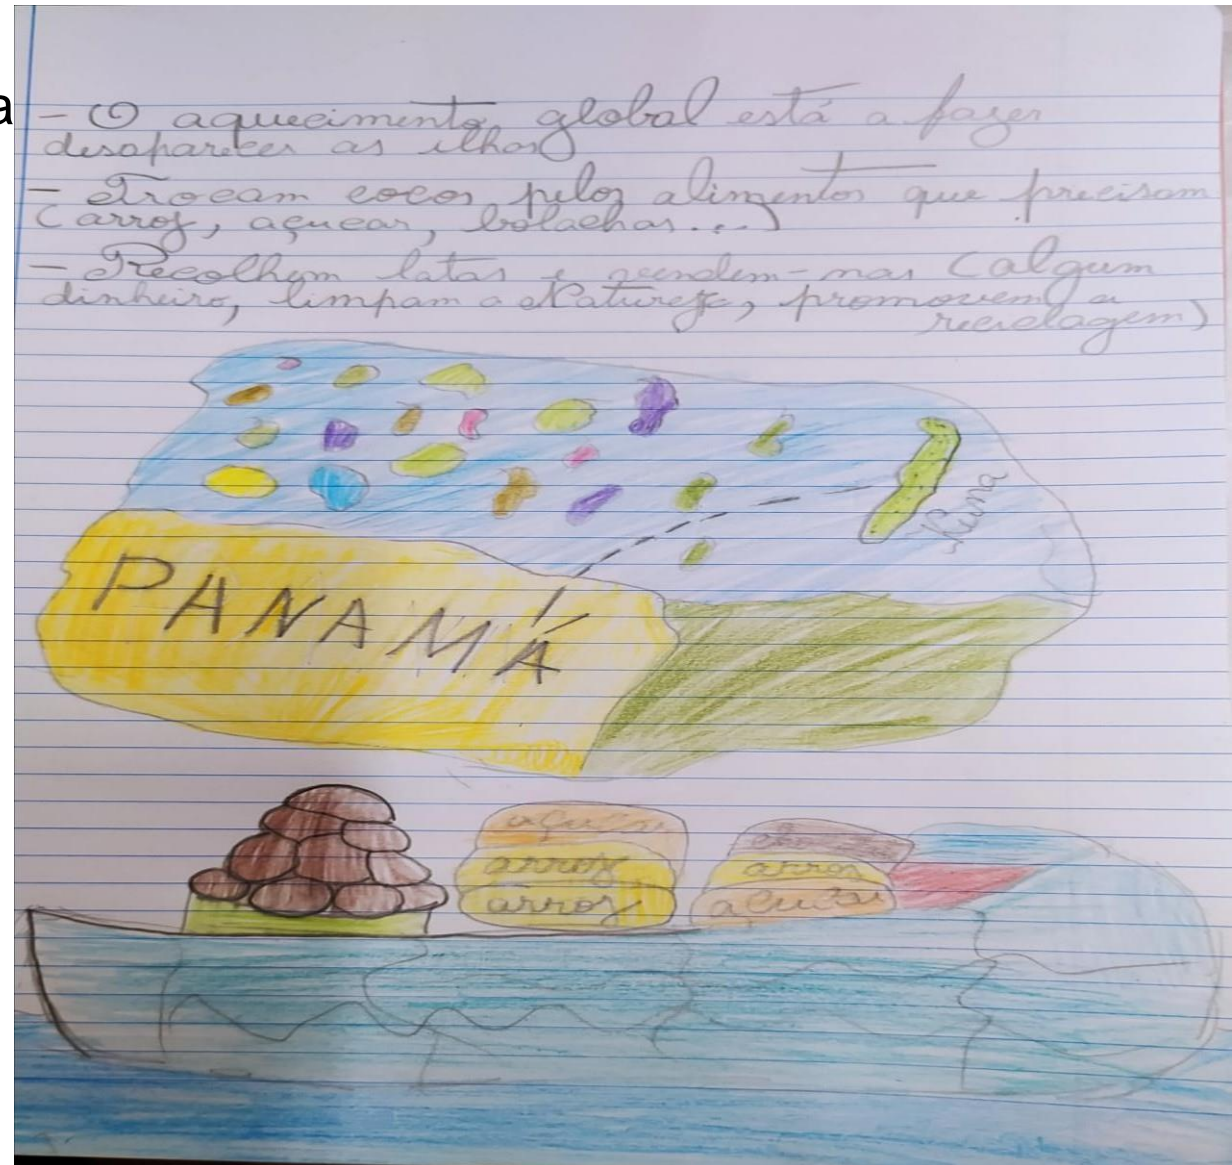 a
- O aquecimento global está a fazer
desaparecer as ilhas
- Trocam cocos pelos alimentos que precisam
(arroz, açucar, bolachas...)
- Recolhem latas e vendem-nas (algum
dinheiro, limpam a Natureza, promovem a
reciclagem)
Kuna
PANAMÁ
açucar
arroz
arroz
arroz
açucar